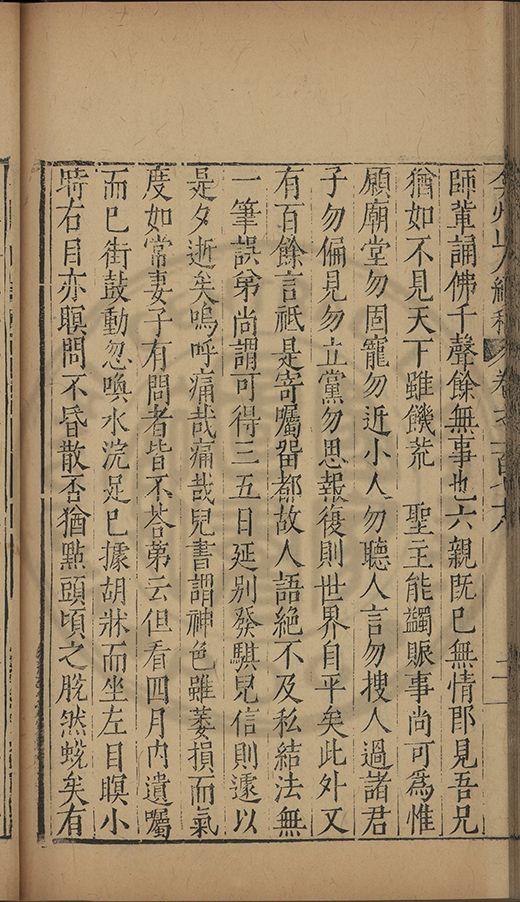 師輩誦佛千聲餘無事也六親既已無情郎見吾兄
猶如不見天下雖饑荒　聖王能蠲賑事尚可為惟
願廟堂勿固寵勿近小人勿聽人言勿搜人過諸君
子勿偏見勿立黨勿思報復則世界自平矣此外又
有百餘言祗是寄囑畱都故人語絕不及私結法無
一筆誤弟尚謂可得三五日延别發騏兒信則遽以
是夕逝矣嗚呼痛哉痛哉兒書謂神色雖萎損而氣
度如常妻子有問者皆不荅第云但看四月內遺囑
而已街鼓動忽喚水浣足已據胡牀而坐左目瞑小
時右目亦瞑問不昏散否猶點頭頃之脫然蛻矣有